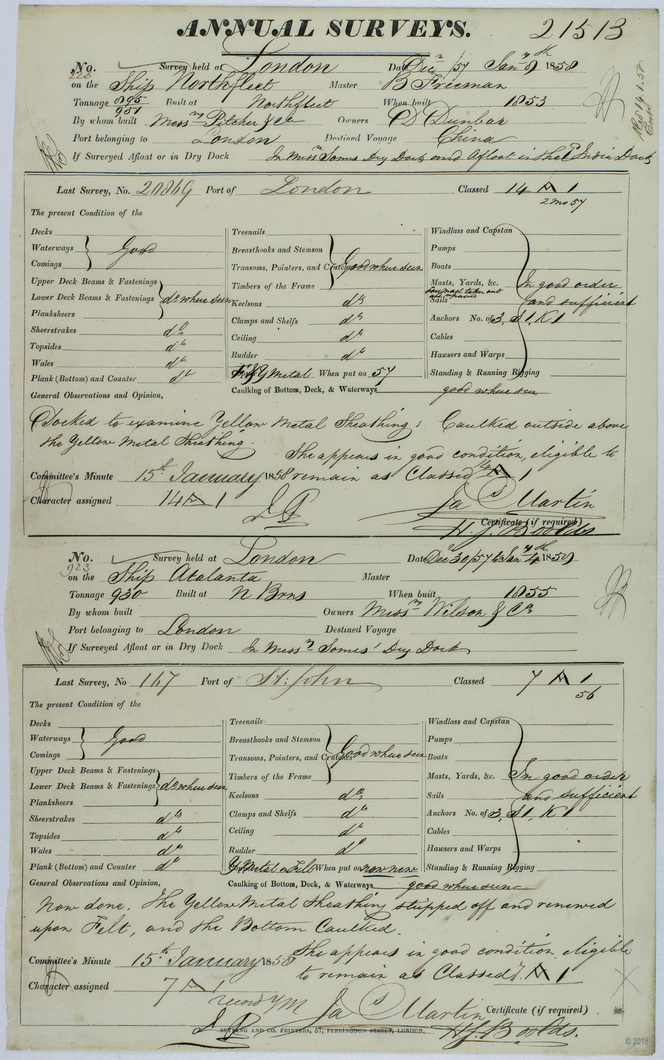 ANNUAL SURVEYS. 21513
No. 922 Survey held at London Date Decr /57 Jany 9th 1858
on the Ship Northfleet Master B Freeman
Tonnage 895 951 Built at Northfleet When built 1853
By whom built Messrs Pitcher & Co Owners D Dunbar
Port belonging to London Destined Voyage China
If Surveyed Afloat or in Dry Dock In Messrs Somes Dry Dock and Afloat in the India Docks
Last Survey, No. 20869 Port of London Classed 14 A 1
2 Mo 57
The present Condition of the
Decks
Waterways
Comings
Good
Upper Deck Beams & Fastenings
Lower Deck Beams & Fastenings
Planksheers
do where seen
Sheerstrakes do
Topsides do
Wales do
Plank (Bottom) and Counter do
Treenails
Breasthooks and Stemson
Transoms, Pointers, and Crutches
Timbers of the Frame
Good where seen
Keelsons do
Clamps and Shelfs do
Ceiling do
Rudder do
Y Metal When put on 57
Windlass and Capstan
Pumps
Boats
Masts, Yards, &c.
Sails
Anchors No. of 3, S1, K1
Cables
Hawsers and Warps
Standing & Running Rigging
In good order
and sufficient
General Observations and Opinion, Caulking of Bottom, Deck, & Waterways good where seen
Docked to examine Yellow Metal Sheathing; Caulked outside above
the Yellow Metal Sheathing.
She appears in good condition, eligible to
Committee's Minute 15th January 1858 remain as Classed 14 A 1
Character assigned 14 A 1
Jas Martin
Certificate (if required)
No. 923 Survey held at London Date Decr 30/57 to Jany
on the Ship Atalanta Master
Tonnage 930 Built at N Brns When built 1855
By whom built Owners Messrs Wilson & Co
Port belonging to London Destined Voyage
If Surveyed Afloat or in Dry Dock In Messrs Somes' Dry Dock
Last Survey, No 167 Port of St. John Classed 7 A 1
56
The present Condition of the
Decks
Waterways
Comings
Good
Upper Deck Beams & Fastenings
Lower Deck Beams & Fastenings
Planksheers
do where seen
Sheerstrakes do
Topsides do
Wales do
Plank (Bottom) and Counter do
Treenails
Breasthooks and Stemson
Transoms, Pointers, and Crutches
Timbers of the Frame
Good where seen
Keelsons do
Clamps and Shelfs do
Ceiling do
Rudder do
Y Metal on Felt When put on now new
Windlass and Capstan
Pumps
Boats
Masts, Yards, &c.
Sails
Anchors No. of 3, S1, K1
Cables
Hawsers and Warps
Standing & Running Rigging
In good order
and sufficient
General Observations and Opinion, Caulking of Bottom, Deck, & Waterways good where seen
Now done. The Yellow Metal Sheathing stripped off and renewed
upon Felt, and the Bottom Caulked.
She appears in good condition, eligible
Committee's Minute 15th January 1858 to remain as Classed 7 A 1
Character assigned 7 A 1
record YM Jas Martin Certificate (if required)
AND CO. PRINTERS, 57, FARRINGDON STREET, LONDON.
© 2018